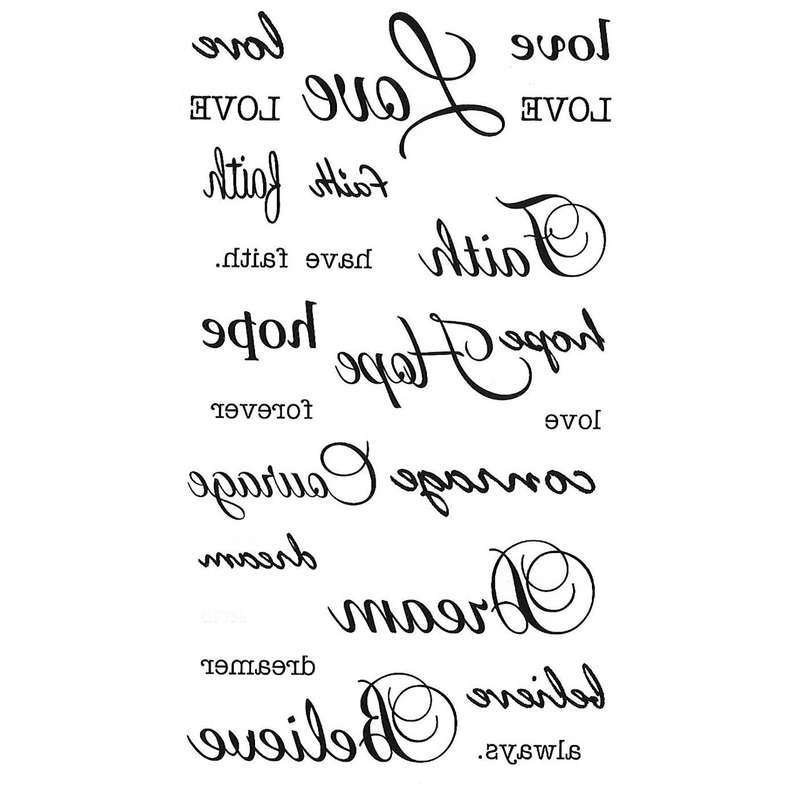 love
Love
love
LOVE
LOVE
faith
faith
Faith
have faith.
hope
Hope
hope
love
forever
courage
Courage
dream
Dream
dreamer
believe
Believe
always.